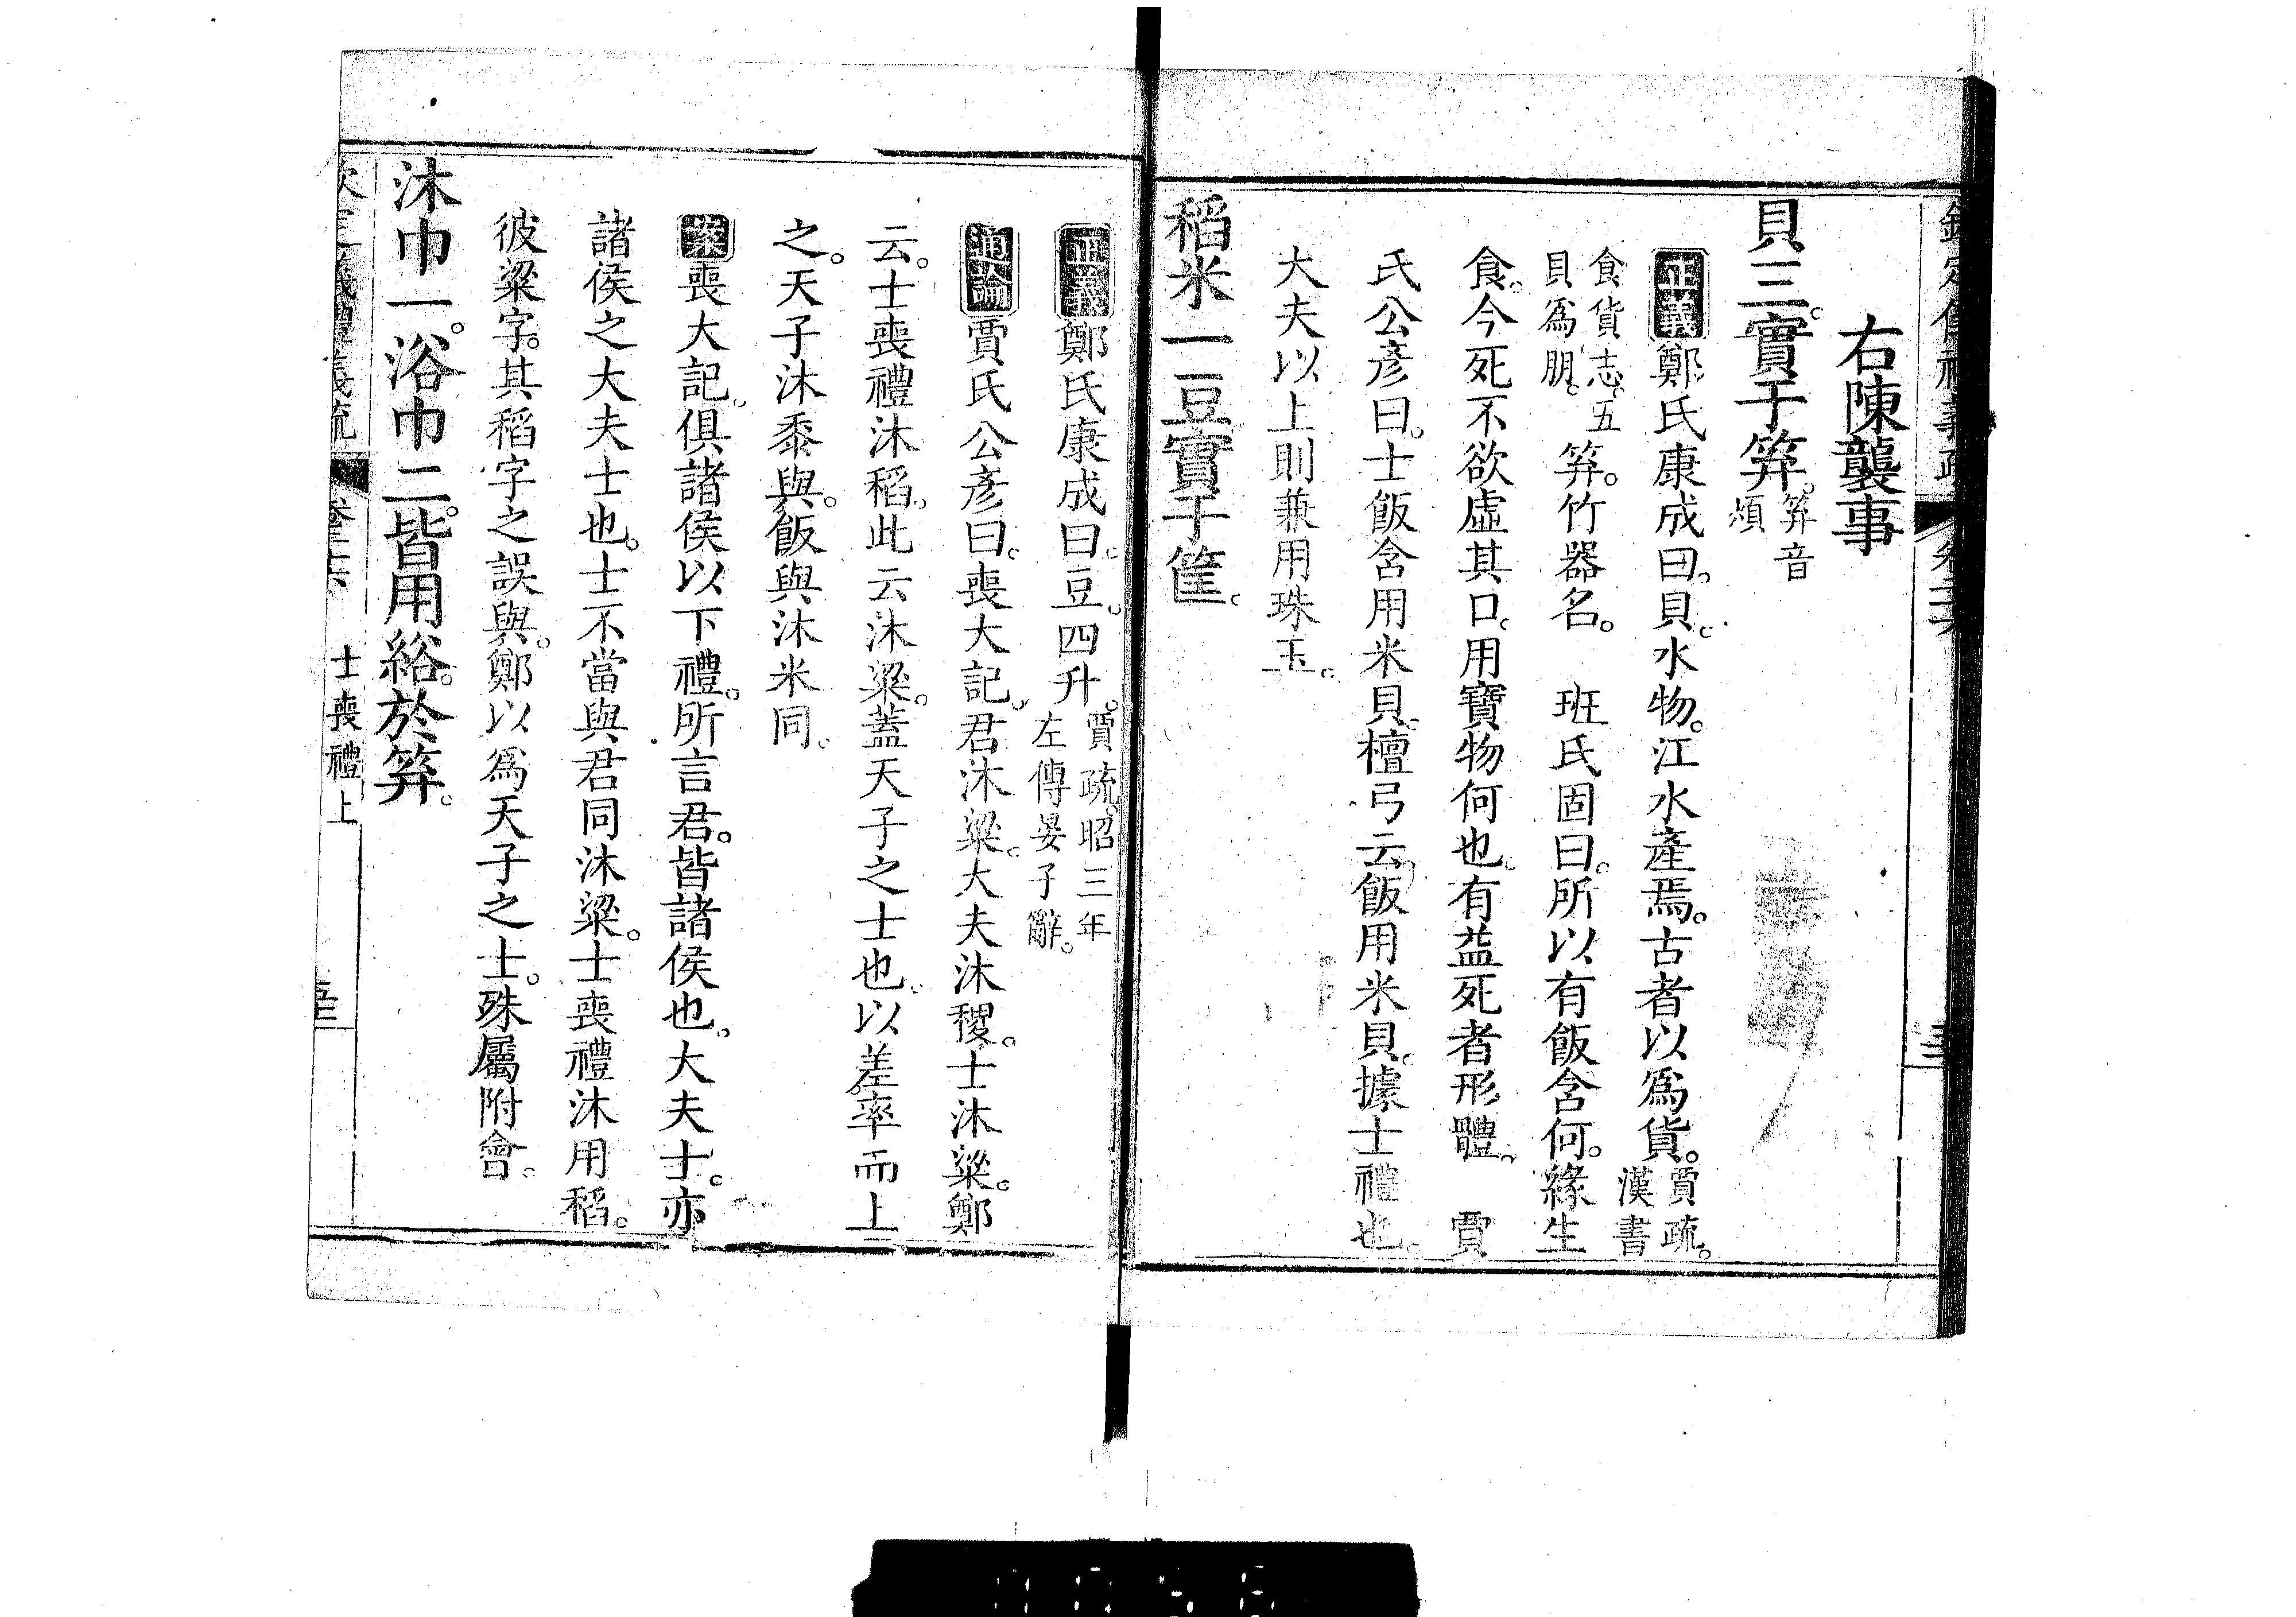 右陳襲事
貝三。實于笲。笲音煩
正義鄭氏康成曰。貝。水物。江水產焉。古者以爲貨。賈疏。漢書
食貨志。五貝爲朋。笲。竹器名。 班氏固曰。所以有飯含何。緣生
食。今死不欲虛其口。用寶物何也。有益死者形體。 賈
氏公彥曰。士飯含用米貝。檀弓云。飯用米貝。據士禮也。
大夫以上則兼用珠玉。
稻米一豆實于筐。
正義鄭氏康成曰。豆。四升。賈疏。昭三年左傳晏子辭。
通論賈氏公彥曰。喪大記。君沐粱。大夫沐稷。士沐粱。鄭
云。士喪禮沐稻。此云沐粱。蓋天子之士也。以差率而上
之。天子沐黍與。飯與沐米同。
案喪大記。俱諸侯以下禮。所言君。皆諸侯也。大夫士。亦
諸侯之大夫士也。士不當與君同沐粱。士喪禮沐用稻。
彼粱字。其稻字之誤與。鄭以爲天子之士。殊屬附會。
沐巾一。浴巾二。皆用綌。於笲。
士喪禮上